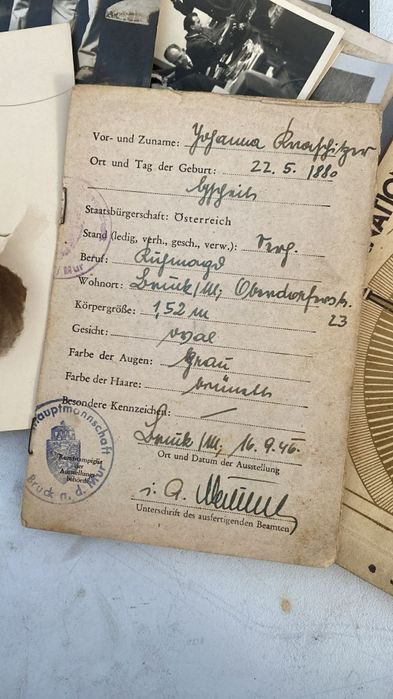 Vor- und Zuname: Johanna
Ort und Tag der Geburt: 22. 5. 1880
Staatsbürgerschaft: Österreich
Stand (ledig, verh., gesch., verw.): Verh.
Beruf: Kuhmagd
Wohnort: Bruck/M, Oberdorferstr.
23
Körpergröße: 1,52 m
Gesicht: oval
Farbe der Augen: Grau
Farbe der Haare: brünett
Besondere Kennzeichen: —
Bruck/M, 16. 9. 46.
Ort und Datum der Ausstellung
Hauptmannschaft
Bruck a. d. Mur
der
Ausstellungs-
behörde
i. A.
Unterschrift des ausfertigenden Beamten
Mur
NATION